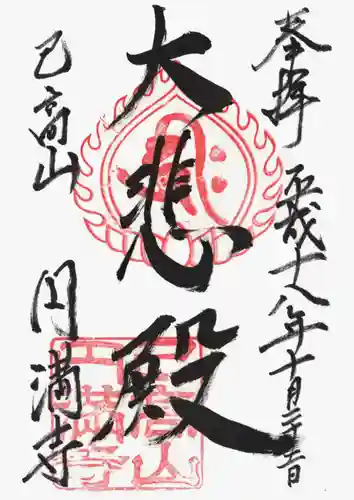 奉拝 平成十八年十月二十五日
大悲殿
己高山 円満寺